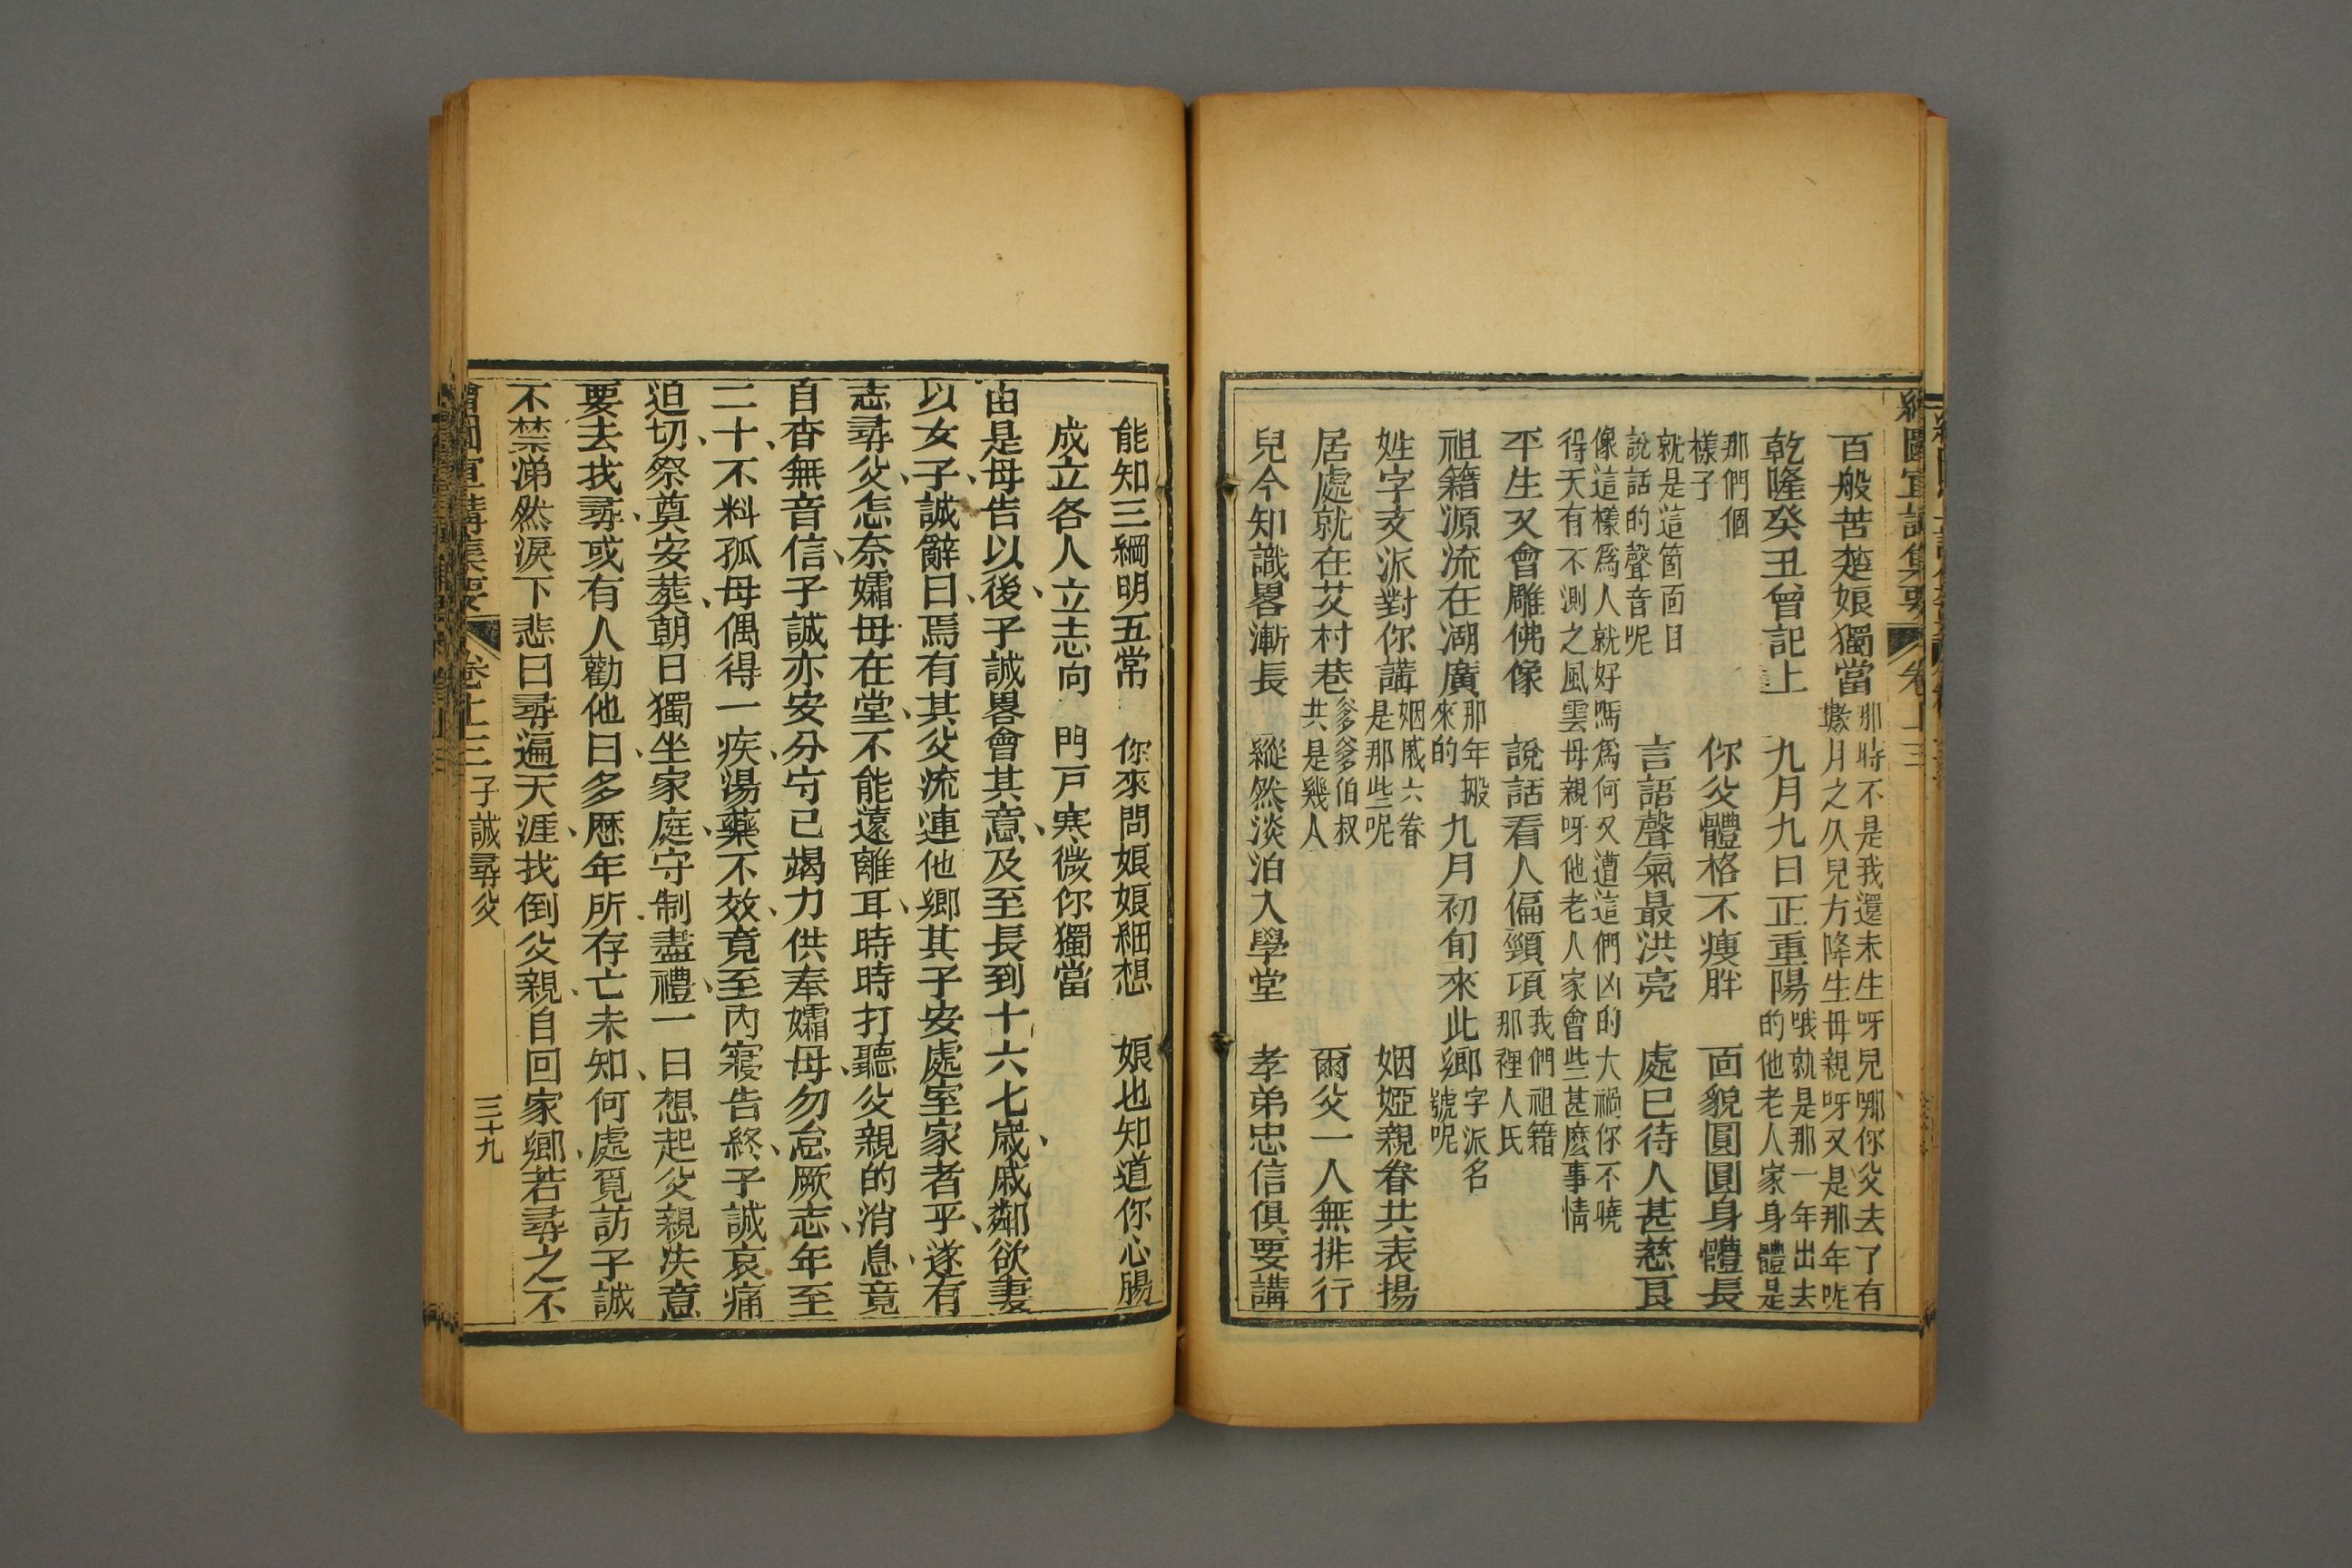 繪圖宣講集要 卷十三
百般苦楚娘獨當 那時不是我還未生呀兒哪你父去了有
數月之久兒方降生毋親呀又是那年咋
乾隆癸丑曾記上 九月九日正重陽 哦就是那一年出去
的他老人家身體是
那們個
樣子 你父體格不瘦胖 面貌圓圓身體長
就是這箇面目
說話的聲音呢 言語聲氣最洪亮 處已待人甚慈良
像這樣為人就好嗎為何又遭這們凶的大禍你不曉
得天有不測之風雲毋親呀他老人家會些甚麼事情
平生又會雕佛像 說話看人偏頸項 我們祖籍
那裡人氏
祖籍源流在湖廣 那年搬
來的 九月初旬來此鄉 字派名
號呢
姓字支派對你講 姻戚六眷
是那些呢 姻婭親眷共表揚
居處就在艾村巷 爹爹伯叔
共是幾人 爾父一人無排行
兒今知識畧漸長 縱然淡泊入學堂 孝弟忠信俱要講
能知三綱明五常 你來問娘娘細想 娘也知道你心腸
成立各人立志向 門戸寒微你獨當
由是毋告以後子誠畧會其意及至長到十六七歲戚鄰欲妻
以女子誠辭曰焉有其父流連他鄉其子安處室家者乎遂有
志尋父怎奈孀毋在堂不能遠離耳時時打聽父親的消息竟
自杳無音信子誠亦安分守已竭力供奉孀毋勿怠厥志年至
二十不料孤毋偶得一疾湯藥不效竟至內寢告終子誠哀痛
迫切祭奠安葬朝日獨坐家庭守制盡禮一日想起父親決意
要去找尋或有人勸他曰多歷年所存亡未知何處覓訪子誠
不禁涕然淚下悲曰尋遍天涯找倒父親自回家鄉若尋之不
繪圖宣講集要 卷十三 子誠尋父 三十九